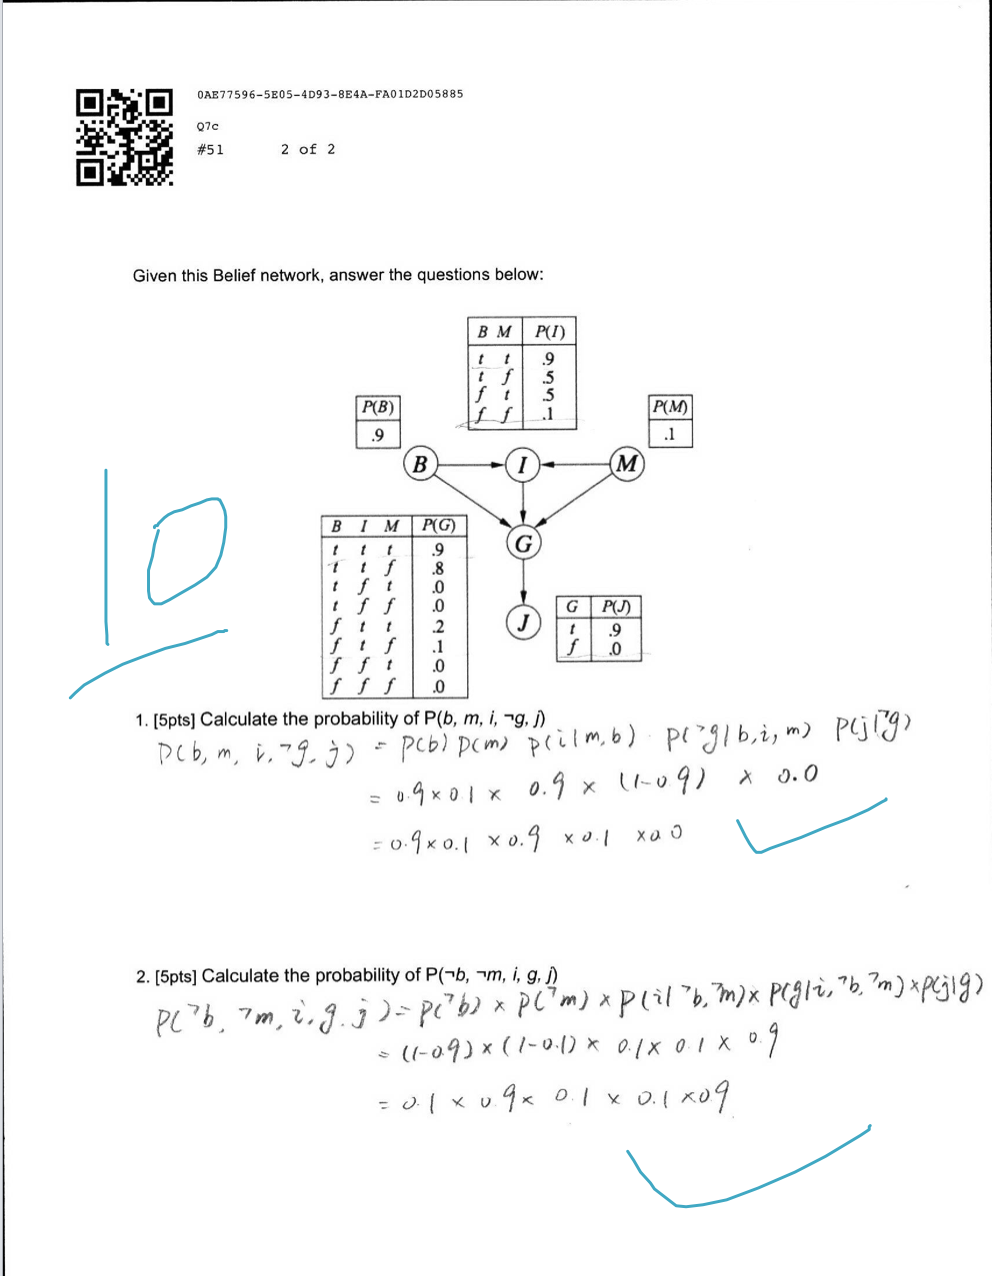 0AE77596-5E05-4D93-8E4A-FA01D2D05885
Q7c
#51 2 of 2
Given this Belief network, answer the questions below:
B M P(I)
t t .9
t f .5
f t .5
f f .1
P(B)
.9
P(M)
.1
B I M
G
J
B I M P(G)
t t t .9
t t f .8
t f t .0
t f f .0
f t t .2
f t f .1
f f t .0
f f f .0
G P(J)
t .9
f .0
10
1. [5pts] Calculate the probability of P(b, m, i, ¬g, j)
P(b, m, i, ¬g, j) = P(b) P(m) P(i|m,b) · P(¬g|b,i,m) P(j|¬g)
= 0.9 × 0.1 × 0.9 × (1-0.9) × 0.0
= 0.9 × 0.1 × 0.9 × 0.1 × 0.0
2. [5pts] Calculate the probability of P(¬b, ¬m, i, g, j)
P(¬b, ¬m, i, g, j) = P(¬b) × P(¬m) × P(i|¬b,¬m) × P(g|i,¬b,¬m) × P(j|g)
= (1-0.9) × (1-0.1) × 0.1 × 0.1 × 0.9
= 0.1 × 0.9 × 0.1 × 0.1 × 0.9